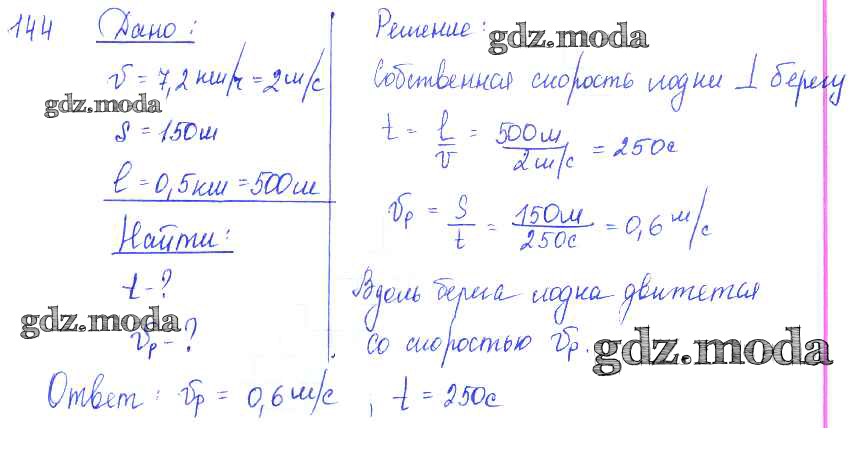 144 Дано:
v = 7,2 км/ч = 2 м/с
gdz.moda
s = 150м
l = 0,5км = 500м
Найти:
t - ?
gdz.moda
vр - ?
Решение:
gdz.moda
Собственная скорость лодки ⊥ берегу
t = l/v = 500м/2м/с = 250с
vр = S/t = 150м/250с = 0,6 м/с
Вдоль берега лодка движется
со скоростью vр.
gdz.moda
Ответ: vр = 0,6 м/с, t = 250с